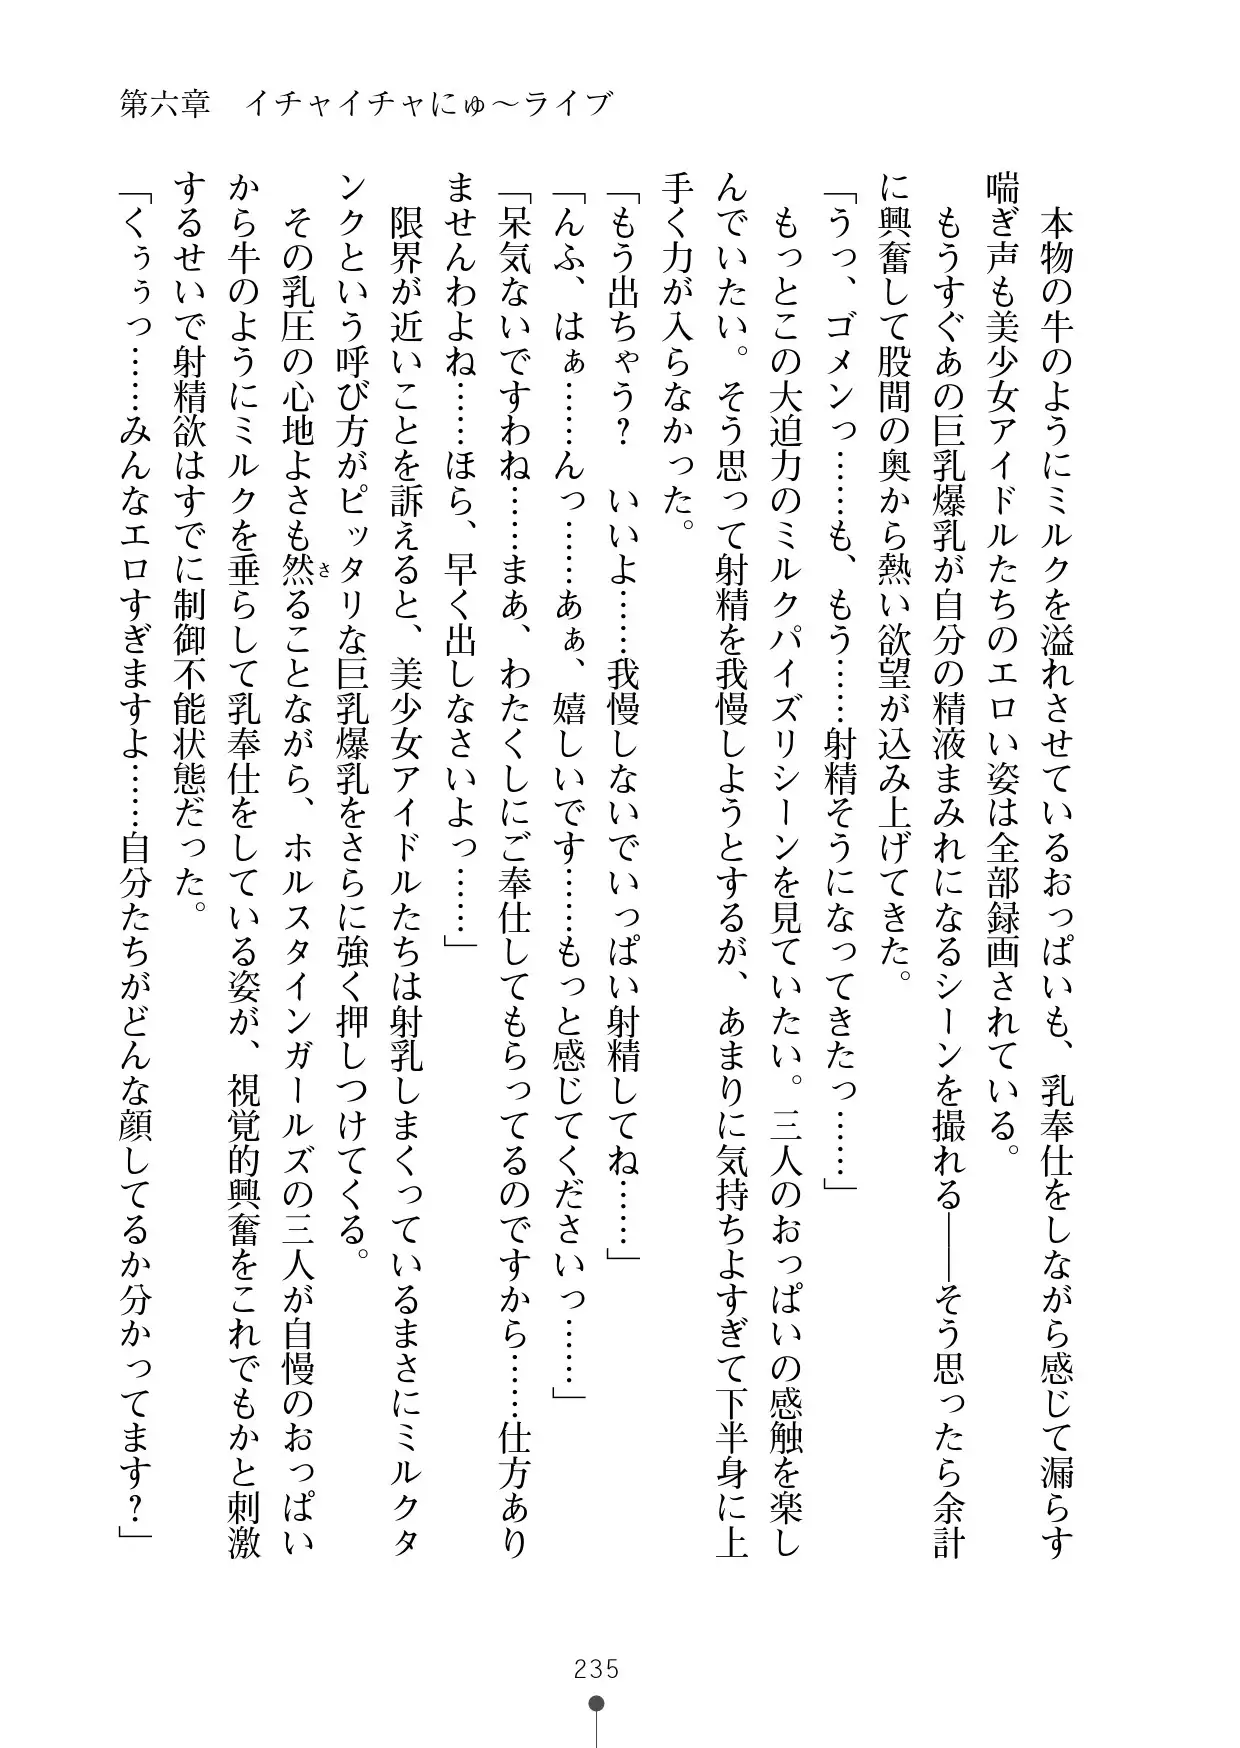 第六章　イチャイチャにゅ〜ライブ
　本物の牛のようにミルクを溢れさせているおっぱいも、乳奉仕をしながら感じて漏らす
喘ぎ声も美少女アイドルたちのエロい姿は全部録画されている。
　もうすぐあの巨乳爆乳が自分の精液まみれになるシーンを撮れる――そう思ったら余計
に興奮して股間の奥から熱い欲望が込み上げてきた。
「うっ、ゴメンっ……も、もう……射精そうになってきたっ……」
　もっとこの大迫力のミルクパイズリシーンを見ていたい。三人のおっぱいの感触を楽し
んでいたい。そう思って射精を我慢しようとするが、あまりに気持ちよすぎて下半身に上
手く力が入らなかった。
「もう出ちゃう？　いいよ……我慢しないでいっぱい射精してね……」
「んふ、はぁ……んっ……あぁ、嬉しいです……もっと感じてくださいっ……」
「呆気ないですわね……まあ、わたくしにご奉仕してもらってるのですから……仕方あり
ませんわよね……ほら、早く出しなさいよっ……」
　限界が近いことを訴えると、美少女アイドルたちは射乳しまくっているまさにミルクタ
ンクという呼び方がピッタリな巨乳爆乳をさらに強く押しつけてくる。
　その乳圧の心地よさも然さることながら、ホルスタインガールズの三人が自慢のおっぱい
から牛のようにミルクを垂らして乳奉仕をしている姿が、視覚的興奮をこれでもかと刺激
するせいで射精欲はすでに制御不能状態だった。
「くぅぅっ……みんなエロすぎますよ……自分たちがどんな顔してるか分かってます？」
235